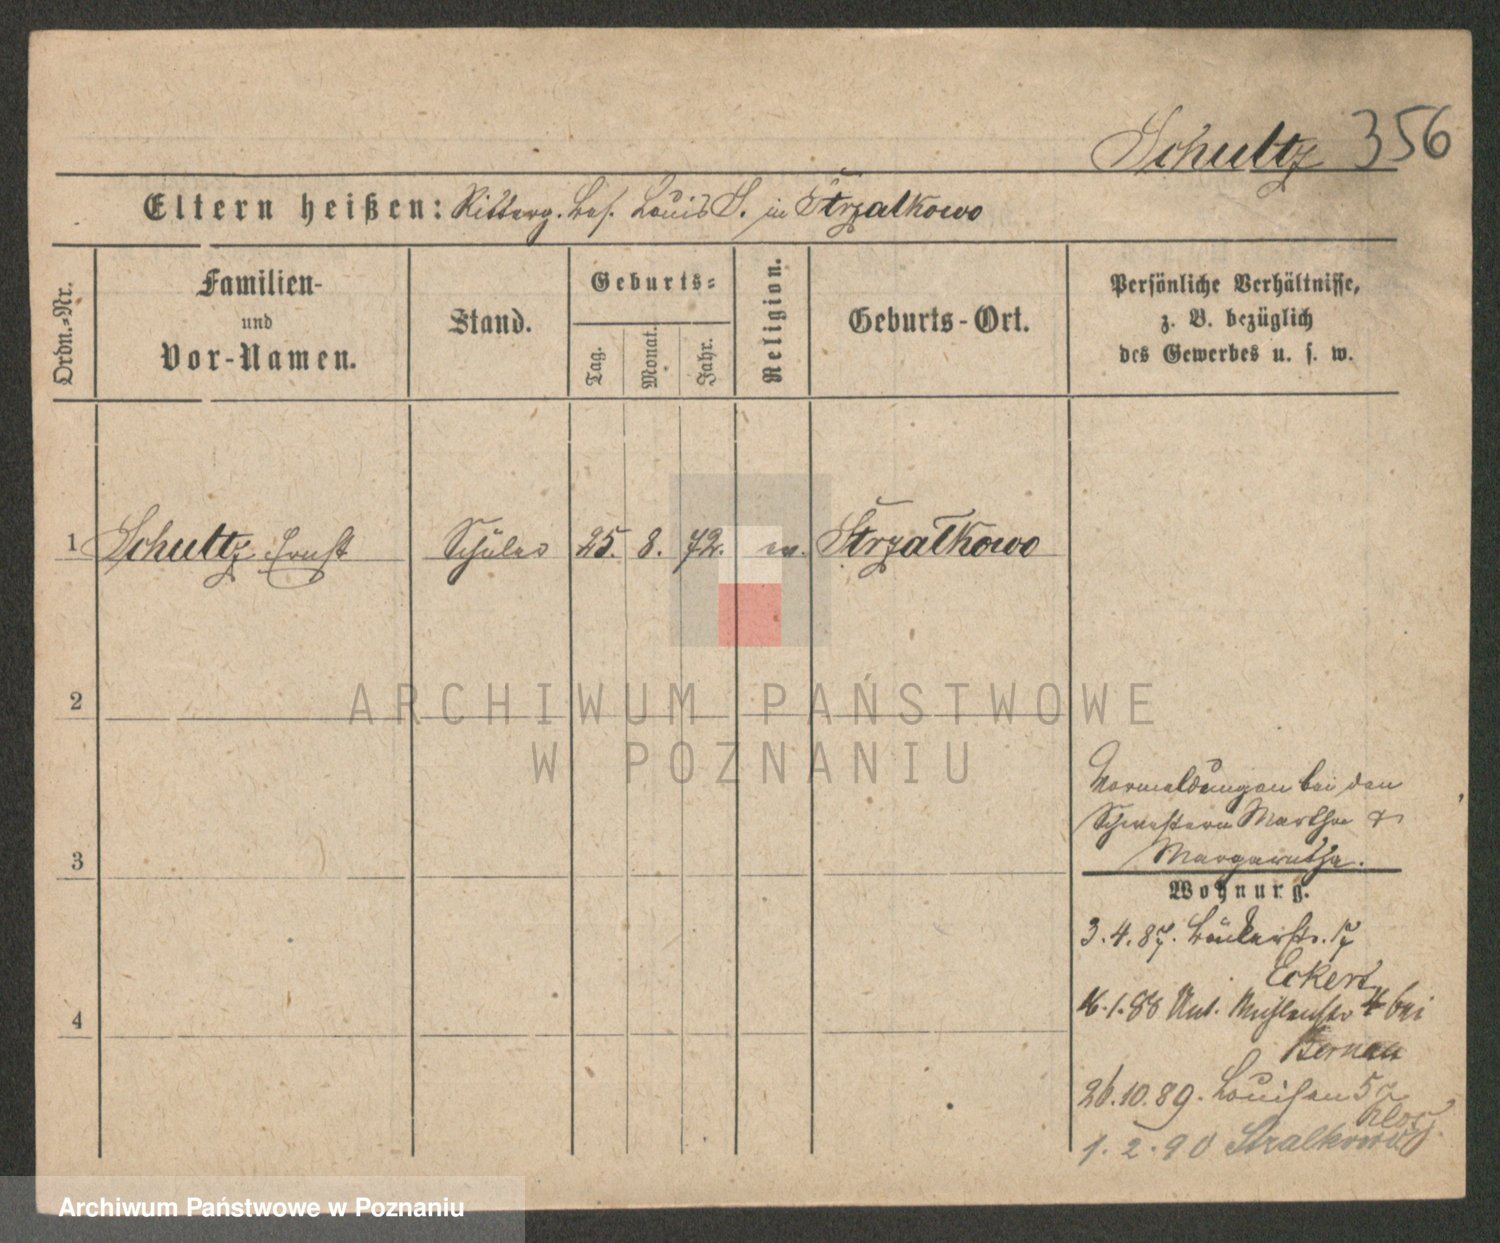 Schultz 356
Eltern heißen: Ritterg. Bes. Louis S. in Strzalkowo
Ordn.-Nr.
Familien-
und
Vor-Namen.
Stand.
Geburts-
Tag.
Monat.
Jahr.
Religion.
Geburts-Ort.
Persönliche Verhältnisse,
z. B. bezüglich
des Gewerbes u. s. w.
1 Schultz Ernst Schüler 25. 8. 72. ev. Strzalkowo
2
ARCHIWUM PAŃSTWOWE
W POZNANIU
Vormeldungen bei den
Schwestern Martha &
3 Margaretha.
Wohnung.
3. 4. 87. Bäckerstr. 17
Eckert
4 16. 1. 88 Unt. Mühlenstr 4 bei
Bernau
26. 10. 89. Louisen 5
1. 2. 90 Stralkowo
Archiwum Państwowe w Poznaniu